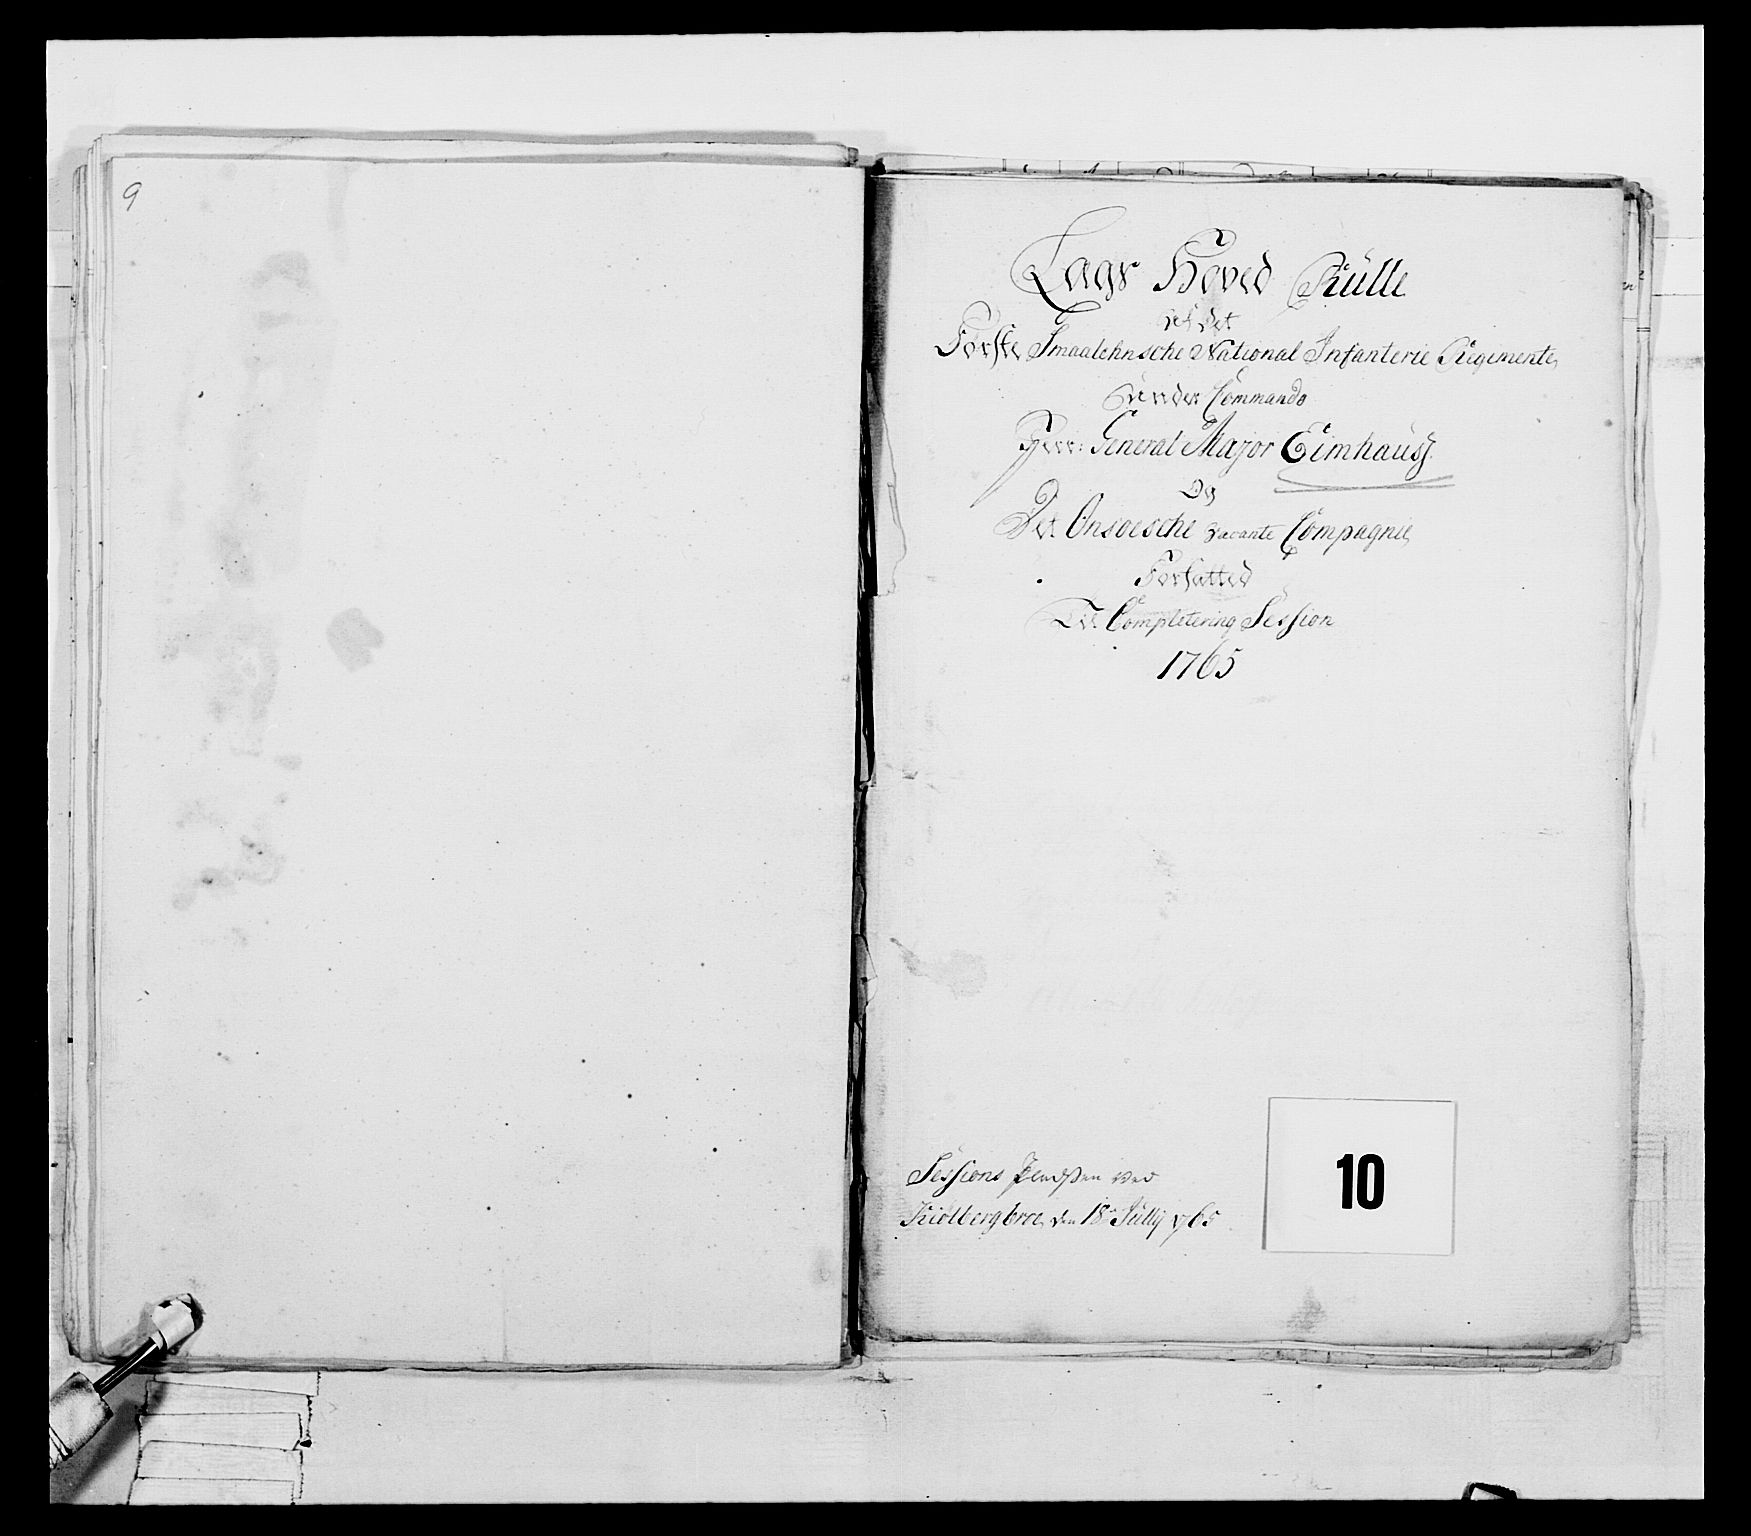 9
Lags Hoved Rülle
af det
Førstе Smaalehnsche National Infanterie Regimente
under Commando
Herr: General Major Eimhauss
Og
Det Onsoesche vacante Compagnie
Forfatted
Til Completering Session
1765
Sessions ved
Kiølbergbroe den 18 Jullij 1765
10